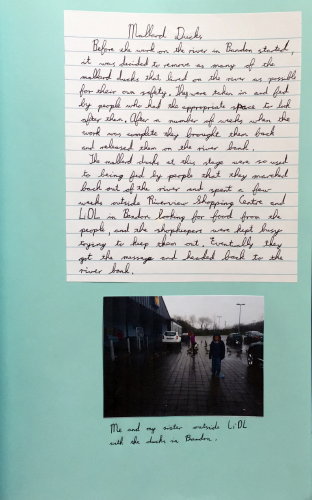 Mallard Ducks
Before the work on the river in Bandon started,
it was decided to remove as many of the
mallard ducks that lived on the river as possible
for their own safety. They were taken in and fed
by people who had the appropriate space to look
after them. After a number of weeks when the
work was complete they brought them back
and released them on the river bank.
The mallard ducks at this stage were so used
to being fed by people that they marched
back out of the river and spent a few
weeks outside Riverview Shopping Centre and
LiDL in Bandon looking for food from the
people, and the shopkeepers were kept busy
trying to keep them out. Eventually they
got the message and headed back to the
river bank.
Me and my sister outside LiDL
with the ducks in Bandon.